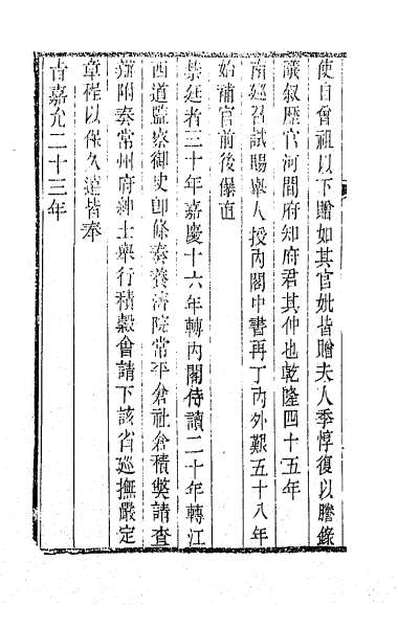 使自曾祖以下贈如其官妣皆贈夫人季惇復以謄錄
議叙歷官河間府知府君其仲也乾隆四十五年
南廵召試賜舉人授內閣中書再丁內外艱五十八年
始補官前後儤直
禁廷者三十年嘉慶十六年轉內閣侍讀二十年轉江
西道監察御史卽條奏養濟院常平倉社倉積獘請查
辦附奏常州府紳士舉行積穀會請下該省廵撫嚴定
章程以俾久遠皆奉
旨嘉允二十三年